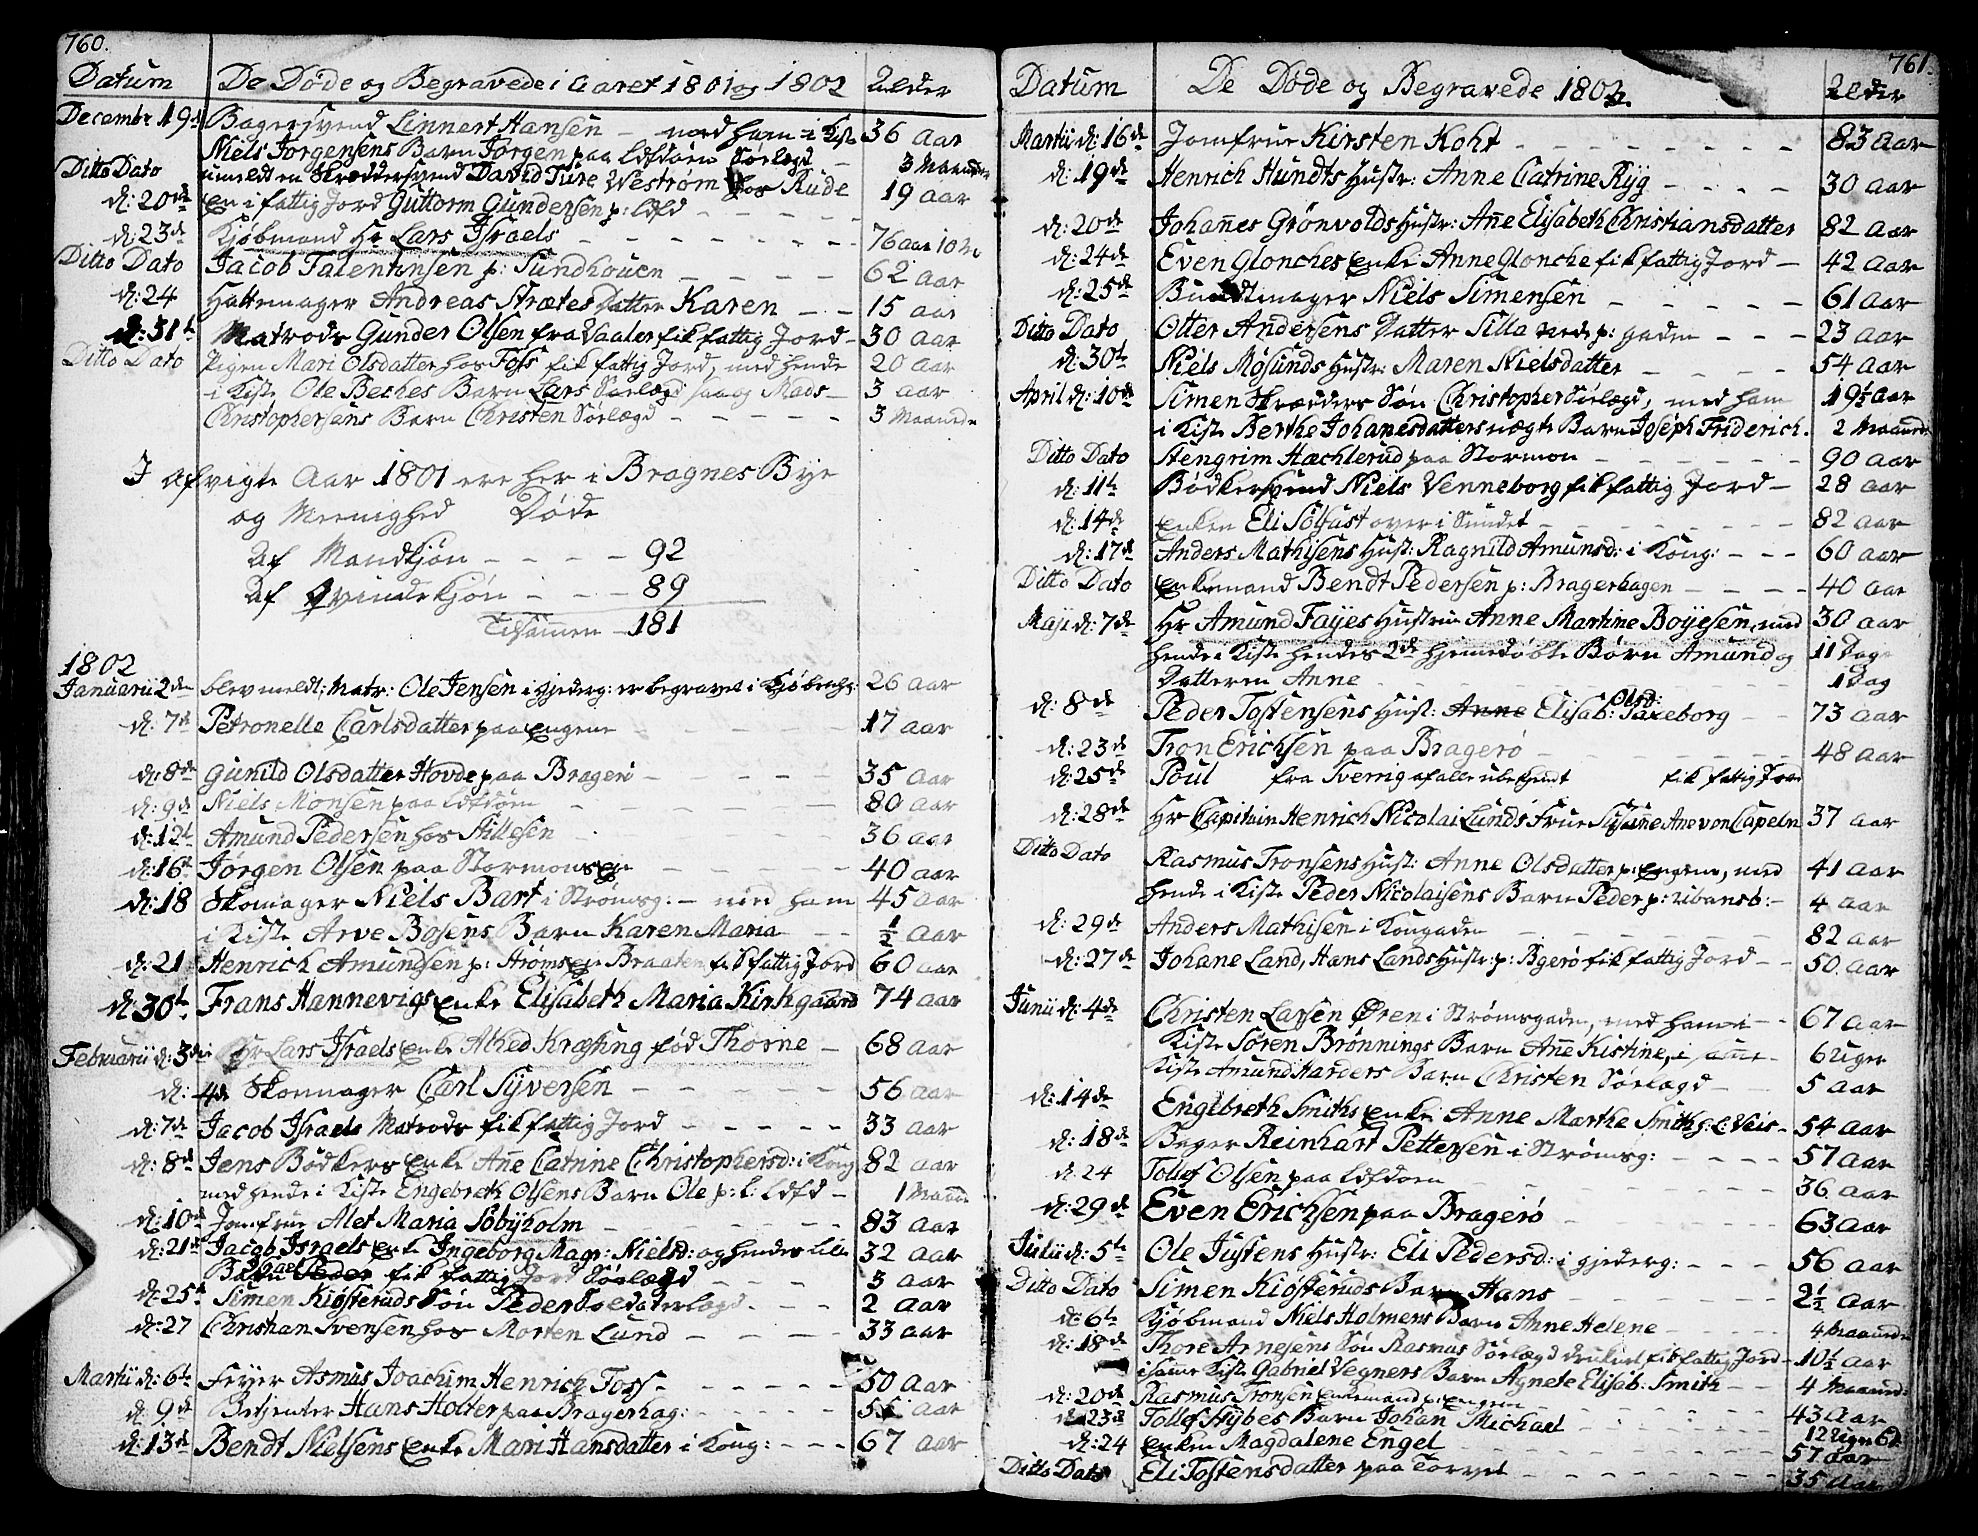 760.
Datum De Døde og Begravede i Aaret 1801 og 1802 Alder
Decembr 19d Bagersvend Linnert Hansen – med ham i Kiste 36 Aar
Niels Jorgensens Barn Jørgen paa Ldfdøren Sørlægd – 3 Maaneder
Ditto Dato Skreddersvend David Ture Westrøm hos Rude 19 Aar
d: 20de en i fattig Jord Guttorm Gundersen p: Ldfd
d: 23de Kjøbmand Hr Lars Israels 76 aar 10 M
Ditto Dato Jacob Talentinsen p: Sundhouen 62 Aar
d: 24 Hattemager Andreas Strætes Datter Karen 15 aar
d: 31te Matrods Gunder Olsen fra Vaaler fik fattig Jord 30 Aar
Ditto Dato Pigen Mari Olsdatter hos Foss fik fattig Jord, med hende 20 Aar
i Kiste Ole Beches Barn Lars Sørlægd saa og Mads 3 Aar
Christophersens Barn Christen Sørlægd 3 Maaneder
I afvigte Aar 1801 ere her i Bragnes Bye
og Meenighed Døde
Af Mandkjøn – 92
Af Qvindekjøn – 89
Tilsammen – 181
1802
Januarii 2den blev meldt: Matr: Ole Jensen i gjederg: er begravet i Kjøbenh: 26 Aar
d: 7de Petronelle Carlsdatter paa Engene 17 Aar
d: 8de Gunild Olsdatter Hovde paa Bragerø 35 Aar
d: 9de Niels Monsen paa Ldfdøren 80 Aar
d: 12te Amund Pedersen hos Stillesen 36 Aar
d: 16de Jørgen Olsen paa Stormoens 40 Aar
d: 18 Skomager Niels Bart i Strømsg: – med ham 45 Aar
i Kiste Arve Bosens Barn Karen Maria ½ Aar
d: 21 Henrich Amundsen p: Strøms Braaten fik fattig Jord 60 Aar
d: 30te Frans Hannevigs Enke Elisabeth Maria Kirkgaard 74 Aar
Februarii d: 3die Hr Lars Israels Enke Alhed Kræfting fød Thorne 68 Aar
d: 4de Skomager Carl Syversen 56 Aar
d: 7de Jacob Israels Matrods fik fattig Jord 33 Aar
d: 8de Jens Bødkers Enke Anne Catrine Christophersd: i Kong 82 Aar
med hende i Kiste Engebreth Olsens Barn Ole p: l: Ldfd 1 Maaned
d: 10de Jomfrue Alet Maria Søbyholm 83 Aar
d: 21de Jacob Israels Enke Ingeborg Magr: Nielsd: og hendes lille 32 Aar
Barn Peder fik fattig Jord Sørlægd 3 Aar
d: 25de Simen Kiøsteruds Søn Peder Soldaterlægd 2 Aar
d: 27 Christian Svensen hos Morten Lund 33 Aar
Martii d: 6te Feyer Asmus Joachim Henrich Foss 50 Aar
d: 9de Betjenter Hans Holter paa Bragerhag: Aar
d: 13de Bendt Nielsens Enke Mari Hansdatter i Kong: 67 Aar
761.
Datum De Døde og Begravede 1802 Alder
Martii d: 16de Jomfrue Kirsten Koht 83 Aar
d: 19de Henrich Hundts Hustr: Anne Catrine Ryg 30 Aar
d: 20de Johannes Grønvolds Hustr: Anne Elisabeth Christiansdatter 82 Aar
d: 24de Even Glonches Enke Anne Glonche fik fattig Jord 42 Aar
d: 25de Bundtmager Niels Simensen 61 Aar
Ditto Dato Otter Andersens Datter Silla nede p: gaden 23 Aar
d: 30te Niels Møsunds Hustr: Maren Nielsdatter 54 Aar
April d: 10de Simen Skredders Søn Christopher Sørlægd, med ham 19½ Aar
i Kiste Berthe Johanesdatters uægte Barn Joseph Friderich. 2 Maaneder
Ditto Dato Stengrim Hæchlerud paa Stormon 90 Aar
d: 11te Bødkersvend Niels Venneborg fik fattig Jord 28 Aar
d: 14de Enken Eli Solfust over i Sundet 82 Aar
d: 17de Anders Mathisens Hust: Ragnild Amunsd: i Kong: 60 Aar
Ditto Dato Enkemand Bendt Pedersen p: Bragerhagen 40 Aar
Maji d: 7de Hr Amund Fayes Hustrue Anne Martine Boyesen, med 30 Aar
hende i Kiste hendes 2de hjemedøbte Børn Amund og 11 Dage
Datteren Anne 1 Dag
d: 8de Peder Tostensens Hust: Anne Elisab: Olsd: Saxeborg 73 Aar
d: 23de Tron Erichsen paa Bragerø 48 Aar
d: 25de Poul fra Sverrig af alle ubekjendt fik fattig Jord
d: 28de Hr Capitain Henrich Nicolai Lunds Frue Susanne Ane von Capeln 37 Aar
Ditto Dato Rasmus Tronsens Hust: Anne Olsdatter p: Engene, med 41 Aar
hende i Kiste Peder Nicolaisens Barn Peder p: Ubansb: 4 Aar
d: 29de Anders Mathisen i Kongaden 82 Aar
d: 27de Johane Land, Hans Lands Hustr: p: Bgerø fik fattig Jord 50 Aar
Junii d: 4de Christen Larsen Øren i Strømsgaden, med ham i 67 Aar
Kiste Søren Brønnings Barn Anne Kistine, i samme 6 Uger
Kiste Amund Harders Barn Christen Sørlægd 5 Aar
d: 14de Engebreth Smiths Enke Anne Marthe Smith 54 Aar
d: 18de Bager Reinhart Pettersen i Strømsg: 57 Aar
d: 24 Tollef Olsen paa Ldfdøren 36 Aar
d: 29de Even Erichsen paa Bragerø 63 Aar
Julii d: 5te Ole Justens Hustr: Eli Pedersd: i gjederg: 56 Aar
Ditto Dato Simen Kiøsteruds Barn Hans 2½ Aar
d: 6te Kjøbmand Niels Holmens Barn Anne Helene 4 Maaneder
d: 18de Thore Arnesens Søn Rasmus Sørlægd druknet fik fattig Jord 10½ Aar
i samme Kiste Gabriel Vegners Barn Agnete Elisab: Smith 4 Maaned:
d: 20de Rasmus Tronsen Enkemand p: Engene 43 Aar
d: 23de Tollef Hybes Barn Johan Michael 12 Uger
d: 24 Enken Magdalene Engel 57 Aar
Ditto Dato Eli Tostensdatter paa Torvet 35 Aar